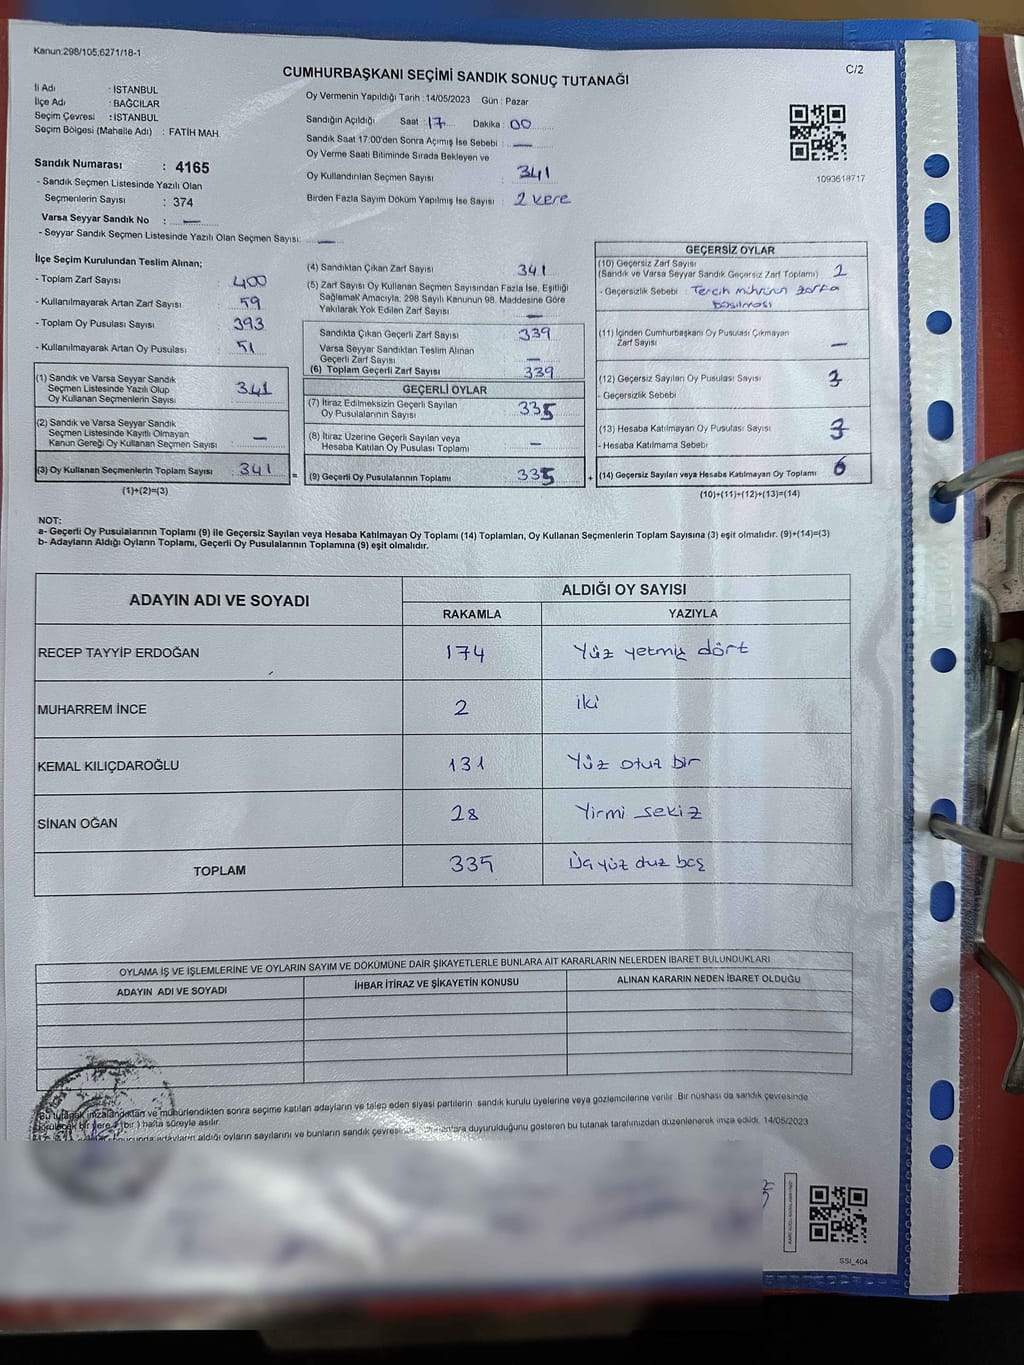 Kanun:298/105,6271/18-1
C/2
CUMHURBAŞKANI SEÇİMİ SANDIK SONUÇ TUTANAĞI
İl Adı : İSTANBUL
İlçe Adı : BAĞCILAR
Seçim Çevresi : İSTANBUL
Seçim Bölgesi (Mahalle Adı) : FATİH MAH.
Sandık Numarası : 4165
- Sandık Seçmen Listesinde Yazılı Olan
Seçmenlerin Sayısı : 374
Varsa Seyyar Sandık No : —
- Seyyar Sandık Seçmen Listesinde Yazılı Olan Seçmen Sayısı: —
Oy Vermenin Yapıldığı Tarih : 14/05/2023 Gün : Pazar
Sandığın Açıldığı Saat : 17 Dakika : 00
Sandık Saat 17:00'den Sonra Açımış İse Sebebi : —
Oy Verme Saati Bitiminde Sırada Bekleyen ve
Oy Kullandırılan Seçmen Sayısı : 341
Birden Fazla Sayım Döküm Yapılmış İse Sayısı : 2 kere
1093618717
İlçe Seçim Kurulundan Teslim Alınan;
- Toplam Zarf Sayısı : 400
- Kullanılmayarak Artan Zarf Sayısı : 59
- Toplam Oy Pusulası Sayısı : 393
- Kullanılmayarak Artan Oy Pusulası : 51
(1) Sandık ve Varsa Seyyar Sandık
Seçmen Listesinde Yazılı Olup
Oy Kullanan Seçmenlerin Sayısı : 341
(2) Sandık ve Varsa Seyyar Sandık
Seçmen Listesinde Kayıtlı Olmayan
Kanun Gereği Oy Kullanan Seçmen Sayısı : —
(3) Oy Kullanan Seçmenlerin Toplam Sayısı : 341
(1)+(2)=(3)
(4) Sandıktan Çıkan Zarf Sayısı : 341
(5) Zarf Sayısı Oy Kullanan Seçmen Sayısından Fazla İse, Eşitliği
Sağlamak Amacıyla; 298 Sayılı Kanunun 98. Maddesine Göre
Yakılarak Yok Edilen Zarf Sayısı : —
Sandıkta Çıkan Geçerli Zarf Sayısı : 339
Varsa Seyyar Sandıktan Teslim Alınan
Geçerli Zarf Sayısı : —
(6) Toplam Geçerli Zarf Sayısı : 339
GEÇERLİ OYLAR
(7) İtiraz Edilmeksizin Geçerli Sayılan
Oy Pusulalarının Sayısı : 335
(8) İtiraz Üzerine Geçerli Sayılan veya
Hesaba Katılan Oy Pusulası Toplamı : —
= (9) Geçerli Oy Pusulalarının Toplamı : 335
GEÇERSİZ OYLAR
(10) Geçersiz Zarf Sayısı
(Sandık ve Varsa Seyyar Sandık Geçersiz Zarf Toplamı) : 2
- Geçersizlik Sebebi : Tercih mührünün zarfa
basılması
(11) İçinden Cumhurbaşkanı Oy Pusulası Çıkmayan
Zarf Sayısı : —
(12) Geçersiz Sayılan Oy Pusulası Sayısı :
- Geçersizlik Sebebi
(13) Hesaba Katılmayan Oy Pusulası Sayısı :
- Hesaba Katılmama Sebebi
+ (14) Geçersiz Sayılan veya Hesaba Katılmayan Oy Toplamı : 6
(10)+(11)+(12)+(13)=(14)
NOT:
a- Geçerli Oy Pusulalarının Toplamı (9) ile Geçersiz Sayılan veya Hesaba Katılmayan Oy Toplamı (14) Toplamları, Oy Kullanan Seçmenlerin Toplam Sayısına (3) eşit olmalıdır. (9)+(14)=(3)
b- Adayların Aldığı Oyların Toplamı, Geçerli Oy Pusulalarının Toplamına (9) eşit olmalıdır.
ADAYIN ADI VE SOYADI ALDIĞI OY SAYISI
RAKAMLA YAZIYLA
RECEP TAYYİP ERDOĞAN 174 Yüz yetmiş dört
MUHARREM İNCE 2 iki
KEMAL KILIÇDAROĞLU 131 Yüz otuz bir
SİNAN OĞAN 28 Yirmi sekiz
TOPLAM 335 Üçyüz otuz beş
OYLAMA İŞ VE İŞLEMLERİNE VE OYLARIN SAYIM VE DÖKÜMÜNE DAİR ŞİKAYETLERLE BUNLARA AİT KARARLARIN NELERDEN İBARET BULUNDUKLARI
ADAYIN ADI VE SOYADI İHBAR İTİRAZ VE ŞİKAYETİN KONUSU ALINAN KARARIN NEDEN İBARET OLDUĞU
Bu tutanak imzalandıktan ve mühürlendikten sonra seçime katılan adayların ve talep eden siyasi partilerin sandık kurulu üyelerine veya gözlemcilerine verilir. Bir nüshası da sandık çevresinde
bir yere 1 (bir) hafta süreyle asılır.
adayların aldığı oyların sayılarını ve bunların sandık duyurulduğunu gösteren bu tutanak tarafımızdan düzenlenerek imza edildi. 14/05/2023
SSI_404